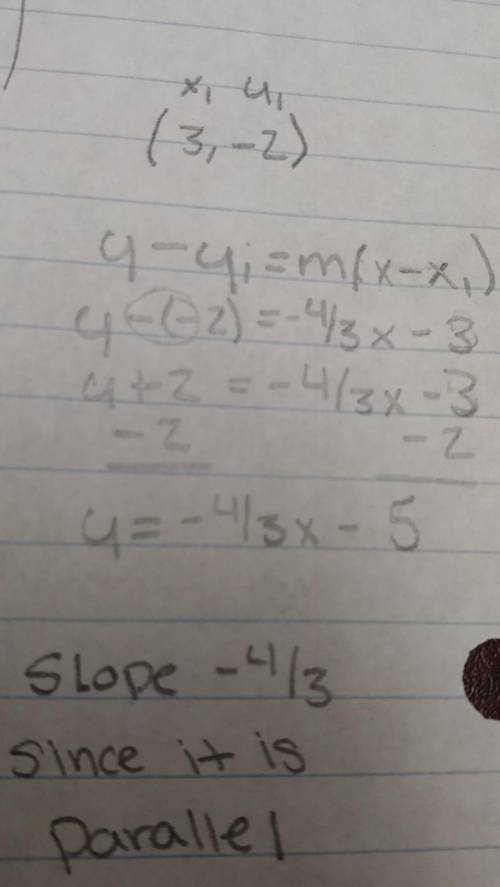 x₁ y₁
(3, -2)
y - y₁ = m(x - x₁)
y - (-2) = -4/3x - 3
y + 2 = -4/3x - 3
-2 -2
y = -4/3x - 5
Slope -4/3
since it is
parallel